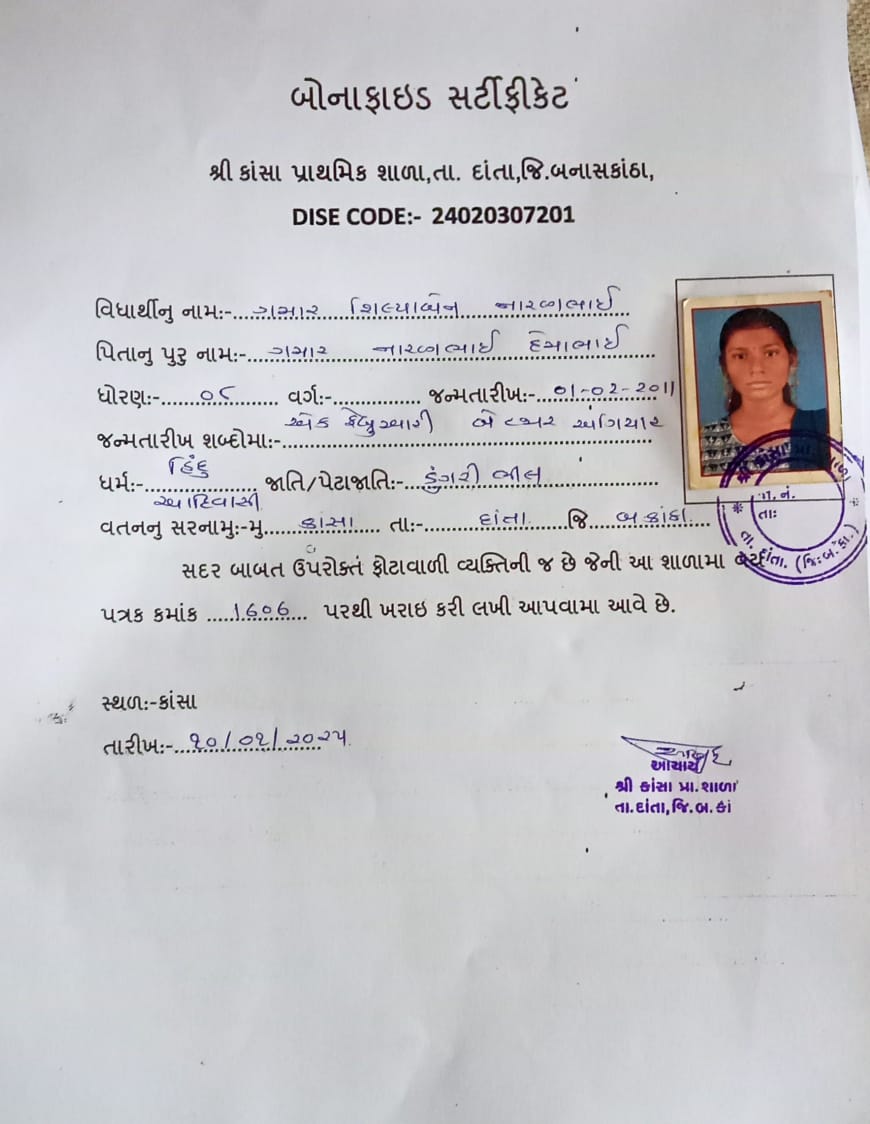 બોનાફાઇડ સર્ટીફીકેટ
શ્રી કાંસા પ્રાથમિક શાળા,તા. દાંતા,જિ.બનાસકાંઠા,
DISE CODE:- 24020307201
વિધાર્થીનુ નામઃ-....ગમાર શિલ્પાબેન નારણભાઈ
પિતાનુ પુરુ નામઃ-....ગમાર નારણભાઈ હેમાભાઈ
ધોરણઃ-.......૦૮........ વર્ગઃ-............... જન્મતારીખઃ-..01-02-2011
જન્મતારીખ શબ્દોમાઃ-એક ફેબ્રુઆરી બે હજાર અગિયાર
ધર્મઃ-હિંદુ આદિવાસી જાતિ/પેટાજાતિઃ-..ડુંગરી ભીલ
વતનનુ સરનામુઃ-મુ.....કાંસા.... તાઃ-........દાંતા..... જિ....બ.કાંઠા...
સદર બાબત ઉપરોક્ત ફોટાવાળી વ્યક્તિની જ છે જેની આ શાળામા
પત્રક ક્માંક .....1606.... પરથી ખરાઇ કરી લખી આપવામા આવે છે.
સ્થળઃ-કાંસા
તારીખઃ-..૧૦/૦૧/૨૦૨૫
આચાર્ય
શ્રી કાંસા પ્રા.શાળા
તા.દાંતા,જિ.બ.કાં
શ્રી કાંસા પ્રા.
તાઃ
તા. દાંતા. (જિઃબ.કાં.)